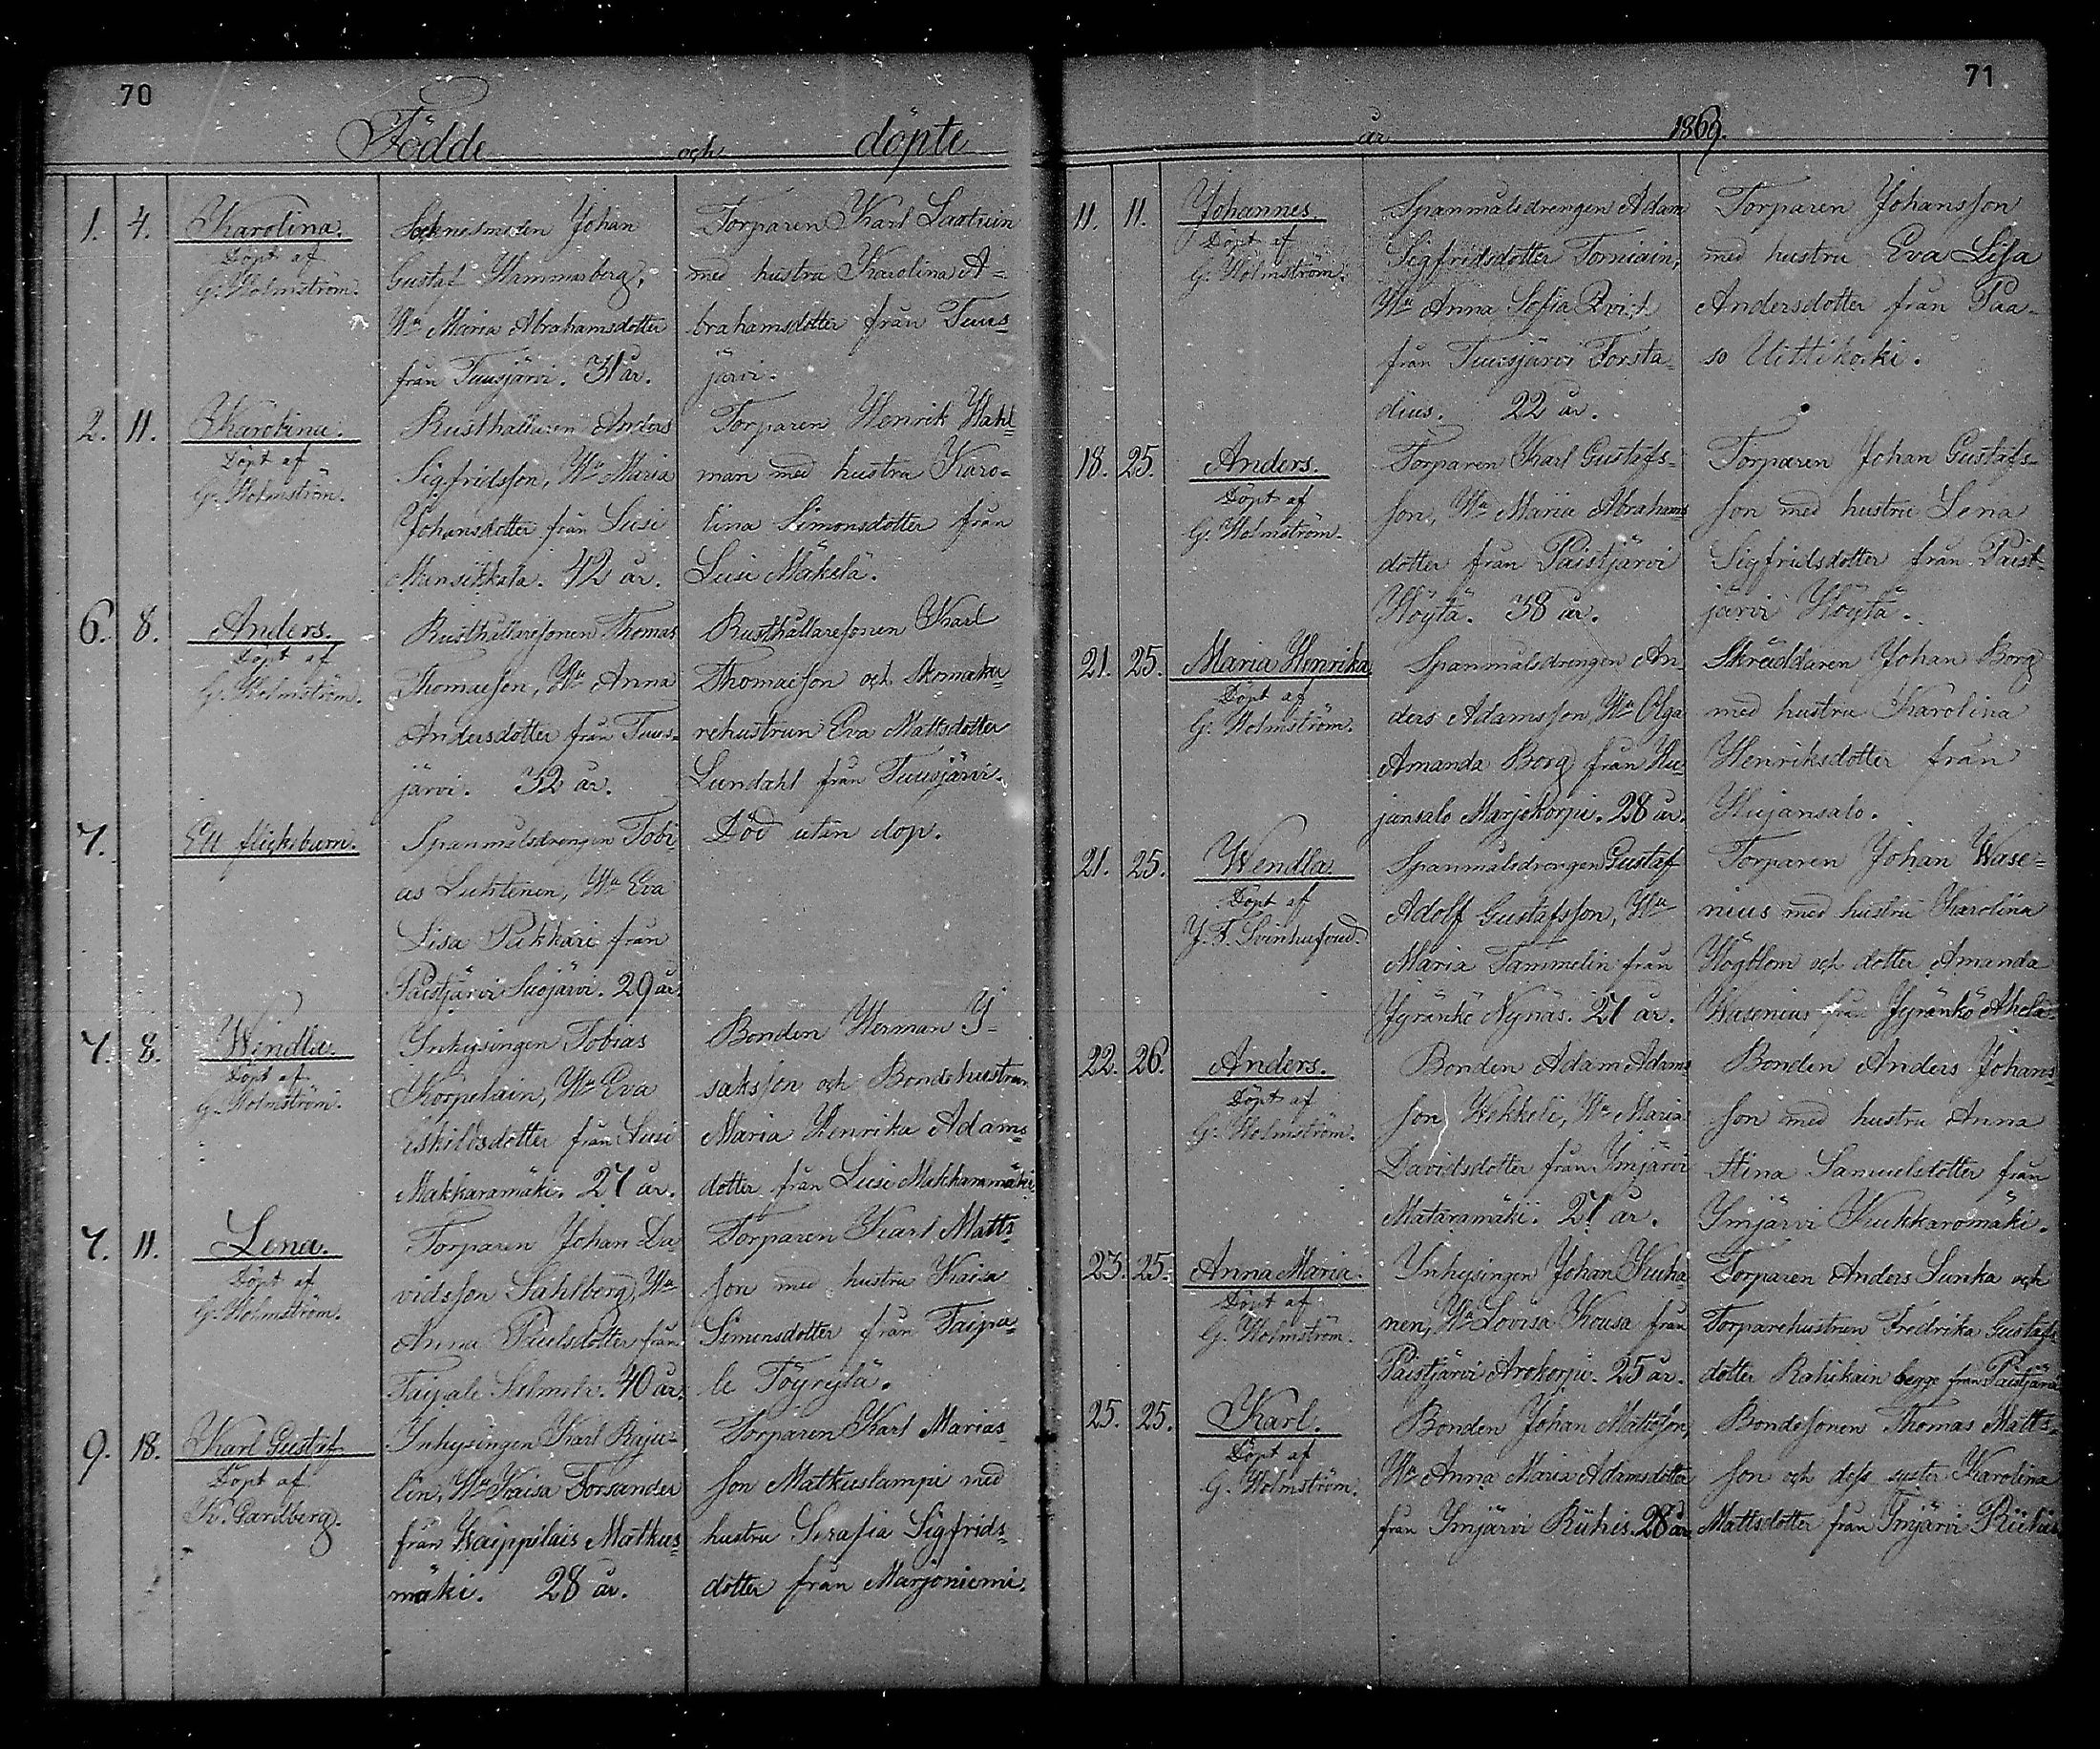 70
Födde och döpte
1. 4. Karolina.
Döpt af
G. Holmström.
Socknesmeden Johan
Gustaf Hammarberg,
Hu Maria Abrahamsdotter
från Tuusjärvi. 31 år.
Torparen Karl
med hustru Karolina A-
brahamsdotter från Tuus-
järvi.
2. 11. Karolina.
Döpt af
G. Holmström.
Rusthållaren Anders
Sigfridsson, Hu Maria
Johansdotter från Lusi
Mansikkala. 42 år.
Torparen Henrik Wahl-
man med hustru Karo-
lina Simonsdotter från
Lusi Mäkelä.
6. 8. Anders.
Döpt af
G. Holmström.
Rusthållaresonen Thomas
Thomasson, Hu Anna
Andersdotter från Tuus-
järvi. 32 år.
Rusthållaresonen Karl
Thomasson och Skomaka-
rehustrun Eva Mattsdotter
Lundahl från Tuusjärvi.
7. Ett flickebarn.
Spanmålsdrengen Tobi-
as Luhtinen, Hu Eva
Lisa Pakkari från
Paistjärvi Suojärvi. 29 år.
Död utan dop.
7. 8. Windla.
Döpt af
G. Holmström.
Inhysingen Tobias
Korpelain, Hu Eva
Eskildsdotter från Lusi
Makkaramäki. 27 år.
Bonden Herman I-
saksson och Bondehustrun
Maria Henrika Adams-
dotter från Lusi Makkaramäki.
7. 11. Lena.
Döpt af
G. Holmström.
Torparen Johan Da-
vidsson Sahlberg, Hu
Anna Paulsdotter från
Taipale Salmela. 40 år.
Torparen Karl Matts-
son med hustru Kaisa
Simonsdotter från Taipa-
le Töyrylä.
9. 18. Karl Gustaf.
Döpt af
K. Gardberg.
Inhysingen Karl Raju-
lin, Hu Kaisa Forsander
från Waippilais Matkus-
mäki. 28 år.
Torparen Karl Marias-
son Matkuslampi med
hustru Serafia Sigfrids-
dotter från Marjoniemi.
71
år 1869.
11. 11. Johannes.
Döpt af
G. Holmström.
Spanmålsdrengen Adam
Sigfridsdotter Torniain,
Hu Anna Sofia Qvist
från Tuusjärvi Forsta-
dius. 22 år.
Torparen Johansson
med hustru Eva Lisa
Andersdotter från Paa-
so Uittikoski.
18. 25. Anders.
Döpt af
G. Holmström.
Torparen Karl Gustafs-
son, Hu Maria Abrahams-
dotter från Paistjärvi
Höytä. 38 år.
Torparen Johan Gustafs-
son med hustru Lena
Sigfridsdotter från Paist-
järvi Höytä.
21. 25. Maria Henrika
Döpt af
G. Holmström.
Spanmålsdrengen An-
ders Adamsson, Hu Olga
Amanda Borg från Hu-
jansalo Marjokorpi. 28 år.
Skräddaren Johan Borg
med hustru Karolina
Henriksdotter från
Hujansalo.
21. 25. Wendla.
Döpt af
J. F. Svinhufvud.
Spanmålsdrengen Gustaf
Adolf Gustafsson, Hu
Maria Tammelin från
Jyränkö Nynäs. 27 år.
Torparen Johan Wase-
nius med hustru Karolina
Högblom och dotter Amanda
Wasenius från Jyränkö Ahola.
22. 26. Anders.
Döpt af
G. Holmström.
Bonden Adam Adams-
son Wekkeli, Hu Maria
Davidsdotter från Imjärvi
Mataramäki. 27 år.
Bonden Anders Johans-
son med hustru Anna
Stina Samuelsdotter från
Imjärvi Kukkaromäki.
23. 25. Anna Maria.
Döpt af
G. Holmström.
Inhysingen Johan Kuha-
nen, Hu Lovisa Kousa från
Paistjärvi Arokorpi. 25 år.
Torparen Anders Lunka och
Torparehustrun Fredrika Gustafs-
dotter Rahikain begge från Paistjärvi
25. 25. Karl.
Döpt af
G. Holmström.
Bonden Johan Mattsson,
Hu Anna Maria Adamsdotter
från Imjärvi Riihis. 28 år.
Bondesonen Thomas Matts-
son och dess syster Karolina
Mattsdotter från Imjärvi Riihis